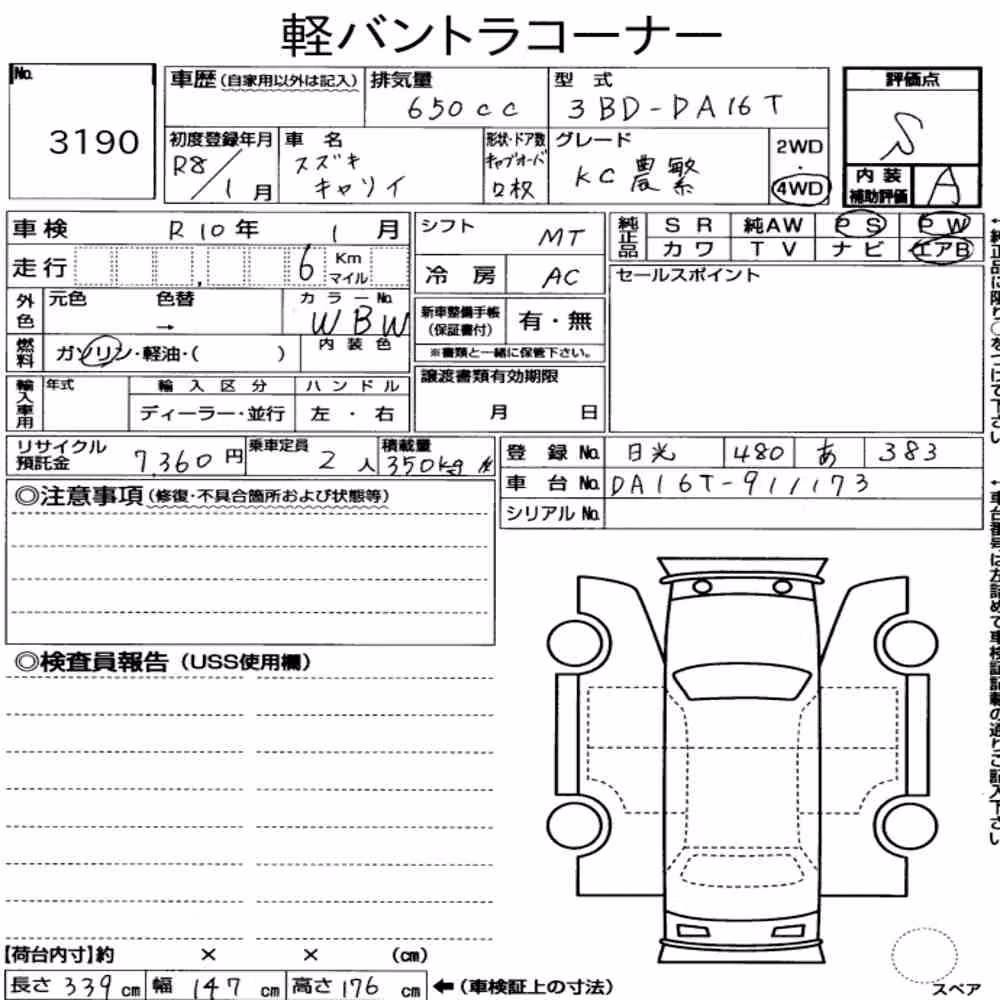 軽バントラコーナー
No. 3190
車歴(自家用以外は記入)
排気量 650cc
型式 3BD-DA16T
評価点 S
初度登録年月 R8/1月
車名 スズキ キャリイ
形状・ドア数 キャブオーバ 2枚
グレード KC農繁
2WD・4WD
内装補助評価 A
車検 R10年 1月
シフト MT
純正品 SR 純AW PS PW
カワ TV ナビ エアB
走行 6 Km マイル
冷房 AC
セールスポイント
外色 元色 色替 → カラーNo. WBW
新車整備手帳(保証書付) 有・無
※書類と一緒に保管下さい。
燃料 ガソリン・軽油・( ) 内装色
譲渡書類有効期限 月 日
輸入車用 年式 輸入区分 ハンドル
ディーラー・並行 左・右
リサイクル預託金 7,360円
乗車定員 2人
積載量 350kg
登録No. 日光 480 あ 383
車台No. DA16T-911173
シリアルNo.
◎注意事項(修復・不具合箇所および状態等)
◎検査員報告(USS使用欄)
【荷台内寸】約 × × (cm)
長さ 339cm 幅 147cm 高さ 176cm ←(車検証上の寸法)
スペア
←純正品に限り○をつけて下さい
←車台番号は左詰めで車検証記載の通りご記入下さい